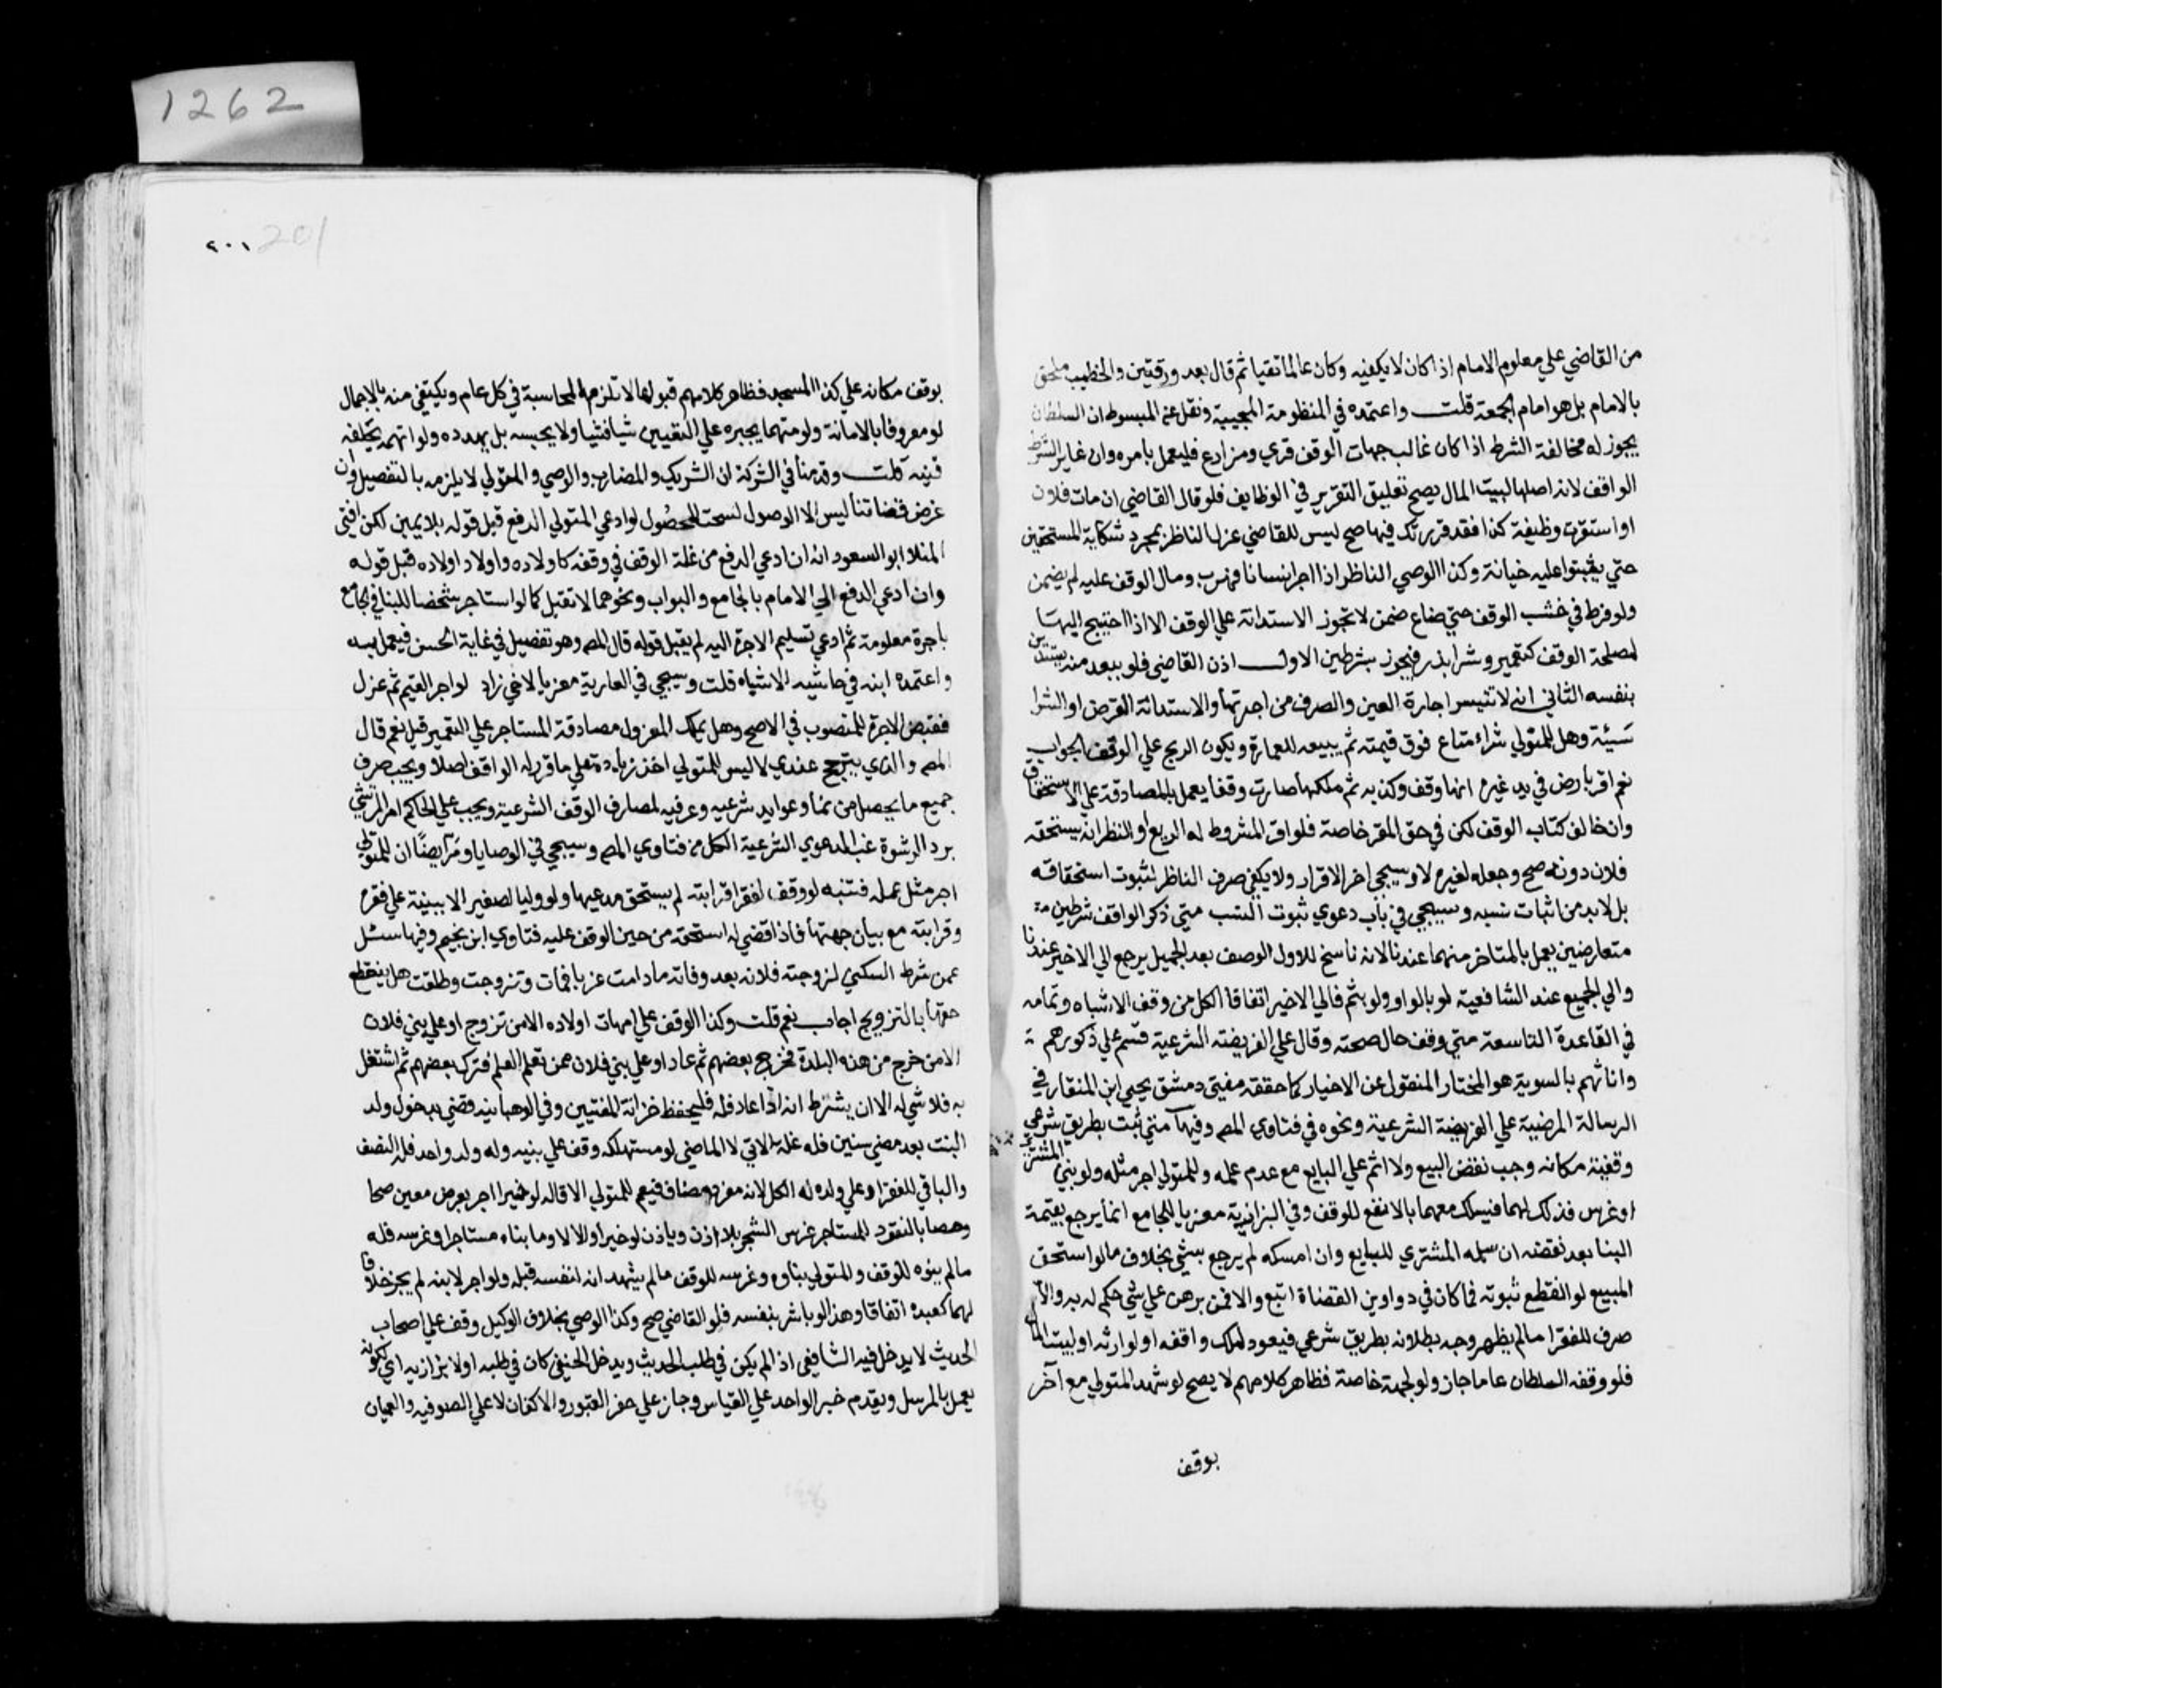 1262
من القاضي علي معلوم الامام اذا كان لا يكفيه وكان عالما تقيا ثم قال بعد ورقتين والخطيب ملحق
بالامام بل هو امام الجمعة قلت واعتمده في المنظومة المحبية ونقل عن المبسوط ان السلطان
يجوز له مخالفة الشرط اذا كان غالب جهات الوقف قري ومزارع فليعمل بامره وان غاير الشرط
الواقف لانه اصلها لبيت المال يصح تعليق التقرير في الوظايف فلو قال القاضي ان مات فلان
او استقرت وظيفة كذا فقد قررتك فيها صح ليس للقاضي عزل الناظر بمجرد شكاية المستحقين
حتي يثبتوا عليه خيانة وكذا الوصي الناظر اذا اجر انسانا فهرب ومال الوقف عليه لم يضمن
ولو فرط في خشب الوقف حتي ضاع ضمن لا تجوز الاستدانة علي الوقف الا اذا احتيج اليها
لمصلحة الوقف كتعمير وشرا بذر فيجوز بشرطين الاول اذن القاضي فلو ببعد منه يستدين
بنفسه الثاني ان لا تتيسر اجارة العين والصرف من اجرتها والاستدانة القرض او الشرا
نسيئة وهل للمتولي شراء متاع فوق قيمته ثم يبيعه للعمارة ويكون الربح علي الوقف الجواب
نعم اقر بارض في يد غيره انها وقف وكذبه ثم ملكها صارت وقفا يعمل بالمصادقة علي الاستحقاق
وان خالف كتاب الوقف لكن في حق المقر خاصة فلو اقر المشروط له الريع او النظر انه يستحقه
فلان دونه صح وجعله لغيره لا وسيجي اخر الاقرار ولا يكفي صرف الناظر لثبوت استحقاقه
بل لا بد من اثبات نسبه وسيجي في باب دعوي ثبوت النسب متي ذكر الواقف شرطين
متعارضين يعمل بالمتاخر منهما عندنا لانه ناسخ للاول الوصف بعد الجميل يرجع الي الاخير عندنا
والي الجميع عند الشافعية لو بالواو ولو بثم فالي الاخير اتفاقا الكل من وقف الاشباه وتمامه
في القاعدة التاسعة متي وقف حال صحته وقال علي الفريضة الشرعية قسم علي ذكورهم
واناثهم بالسوية هو المختار المنقول عن الاخيار كما حققه مفتي دمشق يحيي ابن المنقار في
الرسالة المرضية علي الفريضة الشرعية ونحوه في فتاوي المص وفيها متي ثبت بطريق شرعي
وقفية مكانه وجب نقض البيع ولا اثم علي البايع مع عدم علمه وللمتولي اجر مثله ولو بني المشتري
او غرس فذلك لهما فيسلك معهما بالانفع للوقف وفي البزازية معزيا للجامع انما يرجع بقيمة
البنا بعد نقضه ان سلمه المشتري للبايع وان امسكه لم يرجع بشي بخلاف ما لو استحق
المبيع لو انقطع ثبوته فما كان في دواوين القضاة اتبع والا فمن برهن علي شي حكم له به والا
صرف للفقرا ما لم يظهر وجه بطلانه بطريق شرعي فيعود لملك واقفه او لوارثه او لبيت المال
فلو وقفه السلطان عاما جاز ولو لجهة خاصة فظاهر كلامهم لا يصح لو شهد المتولي مع آخر
بوقف
٢٠١ 201
بوقف مكانه علي كذا المسجد فظاهر كلامهم قبولها لا تلزم المحاسبة في كل عام ويكتفي منه بالاجمال
لو معروفا بالامانة ولو متهما يجبره علي التعيين شيا فشيا ولا يحبسه بل يهدده ولو اتهمه يحلفه
قنية قلت وقدمنا في الشركة ان الشريك والمضارب والوصي والمتولي لا يلزمه بالتفصيل وان
غرض قضاتنا ليس الا الوصول لسحت المحصول لو ادعي المتولي الدفع قبل قوله بلا يمين لكن افتي
المنلا ابو السعود انه ان ادعي الدفع من غلة الوقف في وقفه كاولاده واولاد اولاده قبل قوله
وان ادعي الدفع الي الامام بالجامع والبواب ونحوهما لا تقبل كما لو استاجر شخصا للبنا في الجامع
باجرة معلومة ثم ادعي تسليم الاجرة اليه لم يقبل قوله قال المص وهو تفصيل في غاية الحسن فيعمل به
واعتمده ابنه في حاشية الاشباه قلت وسيجي في العارية معزيا لاخي زاد لو اجر القيم ثم عزل
فقبض الاجرة للمنصوب في الاصح وهل يملك المعزول مصادقة المستاجر علي التعمير قيل نعم قال
المص والذي يترجح عندي لا ليس للمتولي اخذ زيادة علي ما قرر له الواقف اصلا ويجب صرف
جميع ما يحصل من نما وعوايد شرعيه وعرفيه لمصارف الوقف الشرعية ويجب علي الحاكم امر المرتشي
برد الرشوة غب الدعوي الشرعية الكل من فتاوي المص وسيجي في الوصايا ومر ايضا ان للمتولي
اجر مثل عمله فتنبه لو وقف لفقرا قرابته لم يستحق مدعيها ولو وليا لصغير الا ببينة علي فقره
وقرابته مع بيان جهتها فاذا قضي له استحقه من حين الوقف عليه فتاوي ابن نجيم وفيها سئل
عمن شرط السكني لزوجته فلانه بعد وفاته ما دامت عزبا فمات وتزوجت وطلقت هل ينقطع
حقها بالتزويج اجاب نعم قلت وكذا الوقف علي امهات اولاده الا من تزوج او علي بني فلان
الا من خرج من هذه البلدة فخرج بعضهم ثم عاد او علي بني فلان ممن تعلم العلم فترك بعضهم ثم اشتغل
به فلا شي له الا ان يشترط انه اذا عاد فله فليحفظ خزانة المفتيين وفي الوهبانيه قضي بدخول ولد
البنت بعد مضي سنين فله غلة الاتي لا الماضي لو مستهلكه وقف علي بنيه وله ولد واحد فله النصف
والباقي للفقرا وعلي ولده له الكل لانه مفرد مضاف فيعم للمتولي الاقاله لو خيرا اجر بعرض معين صحا
وخصا بالنقود للمستاجر غرس الشجر بلا اذن وياذن لو خيرا والا لا وما بناه مستاجر او غرسه فله
ما لم ينوه للوقف والمتولي بناوه وغرسه للوقف ما لم يشهد انه لنفسه قبله ولو اجر لابنه لم يجز خلافا
لهما كعبده اتفاقا وهذا لو باشر بنفسه فلو القاضي صح وكذا الوصي بخلاف الوكيل وقف علي اصحاب
الحديث لا يدخل فيه الشافعي اذا لم يكن في طلب الحديث ويدخل الحنفي كان في طلبه اولا بزازيه اي لكونه
يعمل بالمرسل ويقدم خبر الواحد علي القياس وجاز علي حفر القبور والاكفان لا علي الصوفيه والعميان